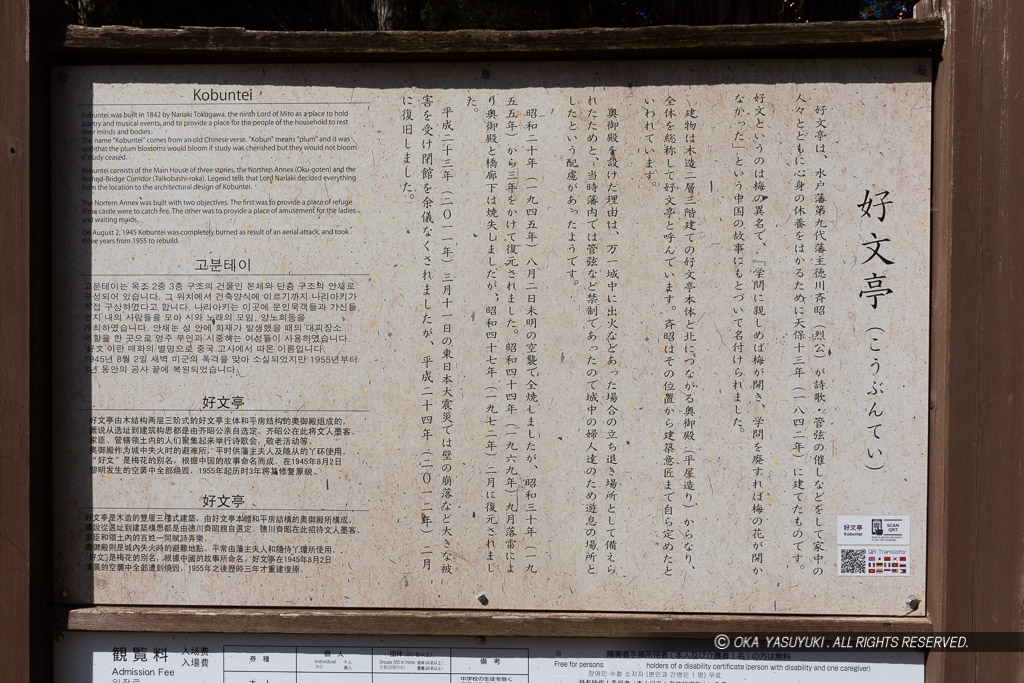 好文亭（こうぶんてい）
好文亭は、水戸藩第九代藩主徳川斉昭（烈公）が詩歌・管弦の催しなどをして家中の
人々とともに心身の休養をはかるために天保十三年（一八四二年）に建てたものです。
好文というのは梅の異名で、「学問に親しめば梅が開き、学問を廃すれば梅の花が開か
なかった」という中国の故事にもとづいて名付けられました。
建物は木造二層三階建ての好文亭本体と北につながる奥御殿（平屋造り）からなり、
全体を総称して好文亭と呼んでいます。斉昭はその位置から建築意匠まで自ら定めたと
いわれています。
奥御殿を設けた理由は、万一城中に出火などあった場合の立ち退き場所として備えら
れたためと、当時藩内では管弦など禁制であったので城中の婦人達のため遊息の場所と
したという配慮があったようです。
昭和二十年（一九四五年）八月二日未明の空襲で全焼しましたが、昭和三十年（一九
五五年）から三年をかけて復元されました。昭和四十四年（一九六九年）九月落雷によ
り奥御殿と橋廊下は焼失しましたが、昭和四十七年（一九七二年）二月に復元されまし
た。
平成二十三年（二〇一一年）三月十一日の東日本大震災では壁の崩落など大きな被
害を受け閉館を余儀なくされましたが、平成二十四年（二〇一二年）二月
に復旧しました。
Kobuntei
Kobuntei was built in 1842 by Nariaki Tokugawa, the ninth Lord of Mito as a place to hold
poetry and musical events, and to provide a place for the people of the household to rest
their minds and bodies.
The name "Kobuntei" comes from an old Chinese verse. "Kobun" means "plum" and it was
said that the plum blossoms would bloom if study was cherished but they would not bloom
if study ceased.
Kobuntei consists of the Main House of three stories, the Northen Annex (Oku-goten) and the
Arched-Bridge Corridor (Taikobashi-roka). Legend tells that Lord Nariaki decided everything
from the location to the architectural design of Kobuntei.
The Nortern Annex was built with two objectives. The first was to provide a place of refuge
if the castle were to catch fire. The other was to provide a place of amusement for the ladies
and waiting maids.
On August 2, 1945 Kobuntei was completely burned as result of an aerial attack, and took
three years from 1955 to rebuild.
고분테이
고분테이는 목조 2층 3층 구조의 건물인 본체와 단층 구조의 안채로
구성되어 있습니다. 그 위치에서 건축양식에 이르기까지 나리아키가
직접 구상하였다고 합니다. 나리아키는 이곳에 문인묵객들과 가신들,
영지 내의 사람들을 모아 시와 노래의 모임, 양노회등을
개최하였습니다. 안채는 성 안에 화재가 발생했을 때의 대피장소
역할을 한 곳으로 영주 부인과 시중하는 여성들이 사용하였습니다.
"好文"이란 매화의 별명으로 중국 고사에서 따온 이름입니다.
1945년 8월 2일 새벽 미군의 폭격을 맞아 소실되었지만 1955년부터
3년 동안의 공사 끝에 복원되었습니다.
好文亭
好文亭由木结构两层三阶式的好文亭主体和平房结构的奥御殿组成的，
据说从选址到建筑构思都是由齐昭公亲自选定。齐昭公在此将文人墨客、
家臣、管辖领土内的人们聚集起来举行诗歌会，敬老活动等。
奥御殿作为城中失火时的避难所，平时供藩主夫人及随从的丫环使用。
"好文"是梅花的别名，根据中国的故事命名而成，在1945年8月2日
黎明发生的空袭中全部烧毁，1955年起历时3年将其修复原貌。
好文亭
好文亭是木造的雙層三樓式建築，由好文亭本體和平房結構的奧御殿所構成。
據說從選址到建築構思都是由德川齊昭親自選定，德川齊昭在此招待文人墨客、
家臣和領土內的百姓一同賦詩弄樂。
奧御殿則是城內失火時的避難地點，平常由藩主夫人和隨侍丫環所使用。
「好文」是梅花的別名，根據中國的故事所命名，好文亭在1945年8月2日
清晨的空襲中全部遭到燒毀，1955年之後歷時三年才重建復原。
好文亭
Kobuntei
SCAN
QRT
QR Translator
観覧料
入场费
入場費
Admission Fee
입장료
券種
個人
Individual
团体(20名以上)
Groups (20 or more)
備考
中学校の生徒を除く
障害者手帳所持者（本人及び介護者１名）の方は無料
Free for persons
holders of a disability certificate (person with disability and one caregiver)
장애인 수첩 소지자 (본인과 간병인 1 명) 무료
© OKA YASUYUKI . ALL RIGHTS RESERVED.